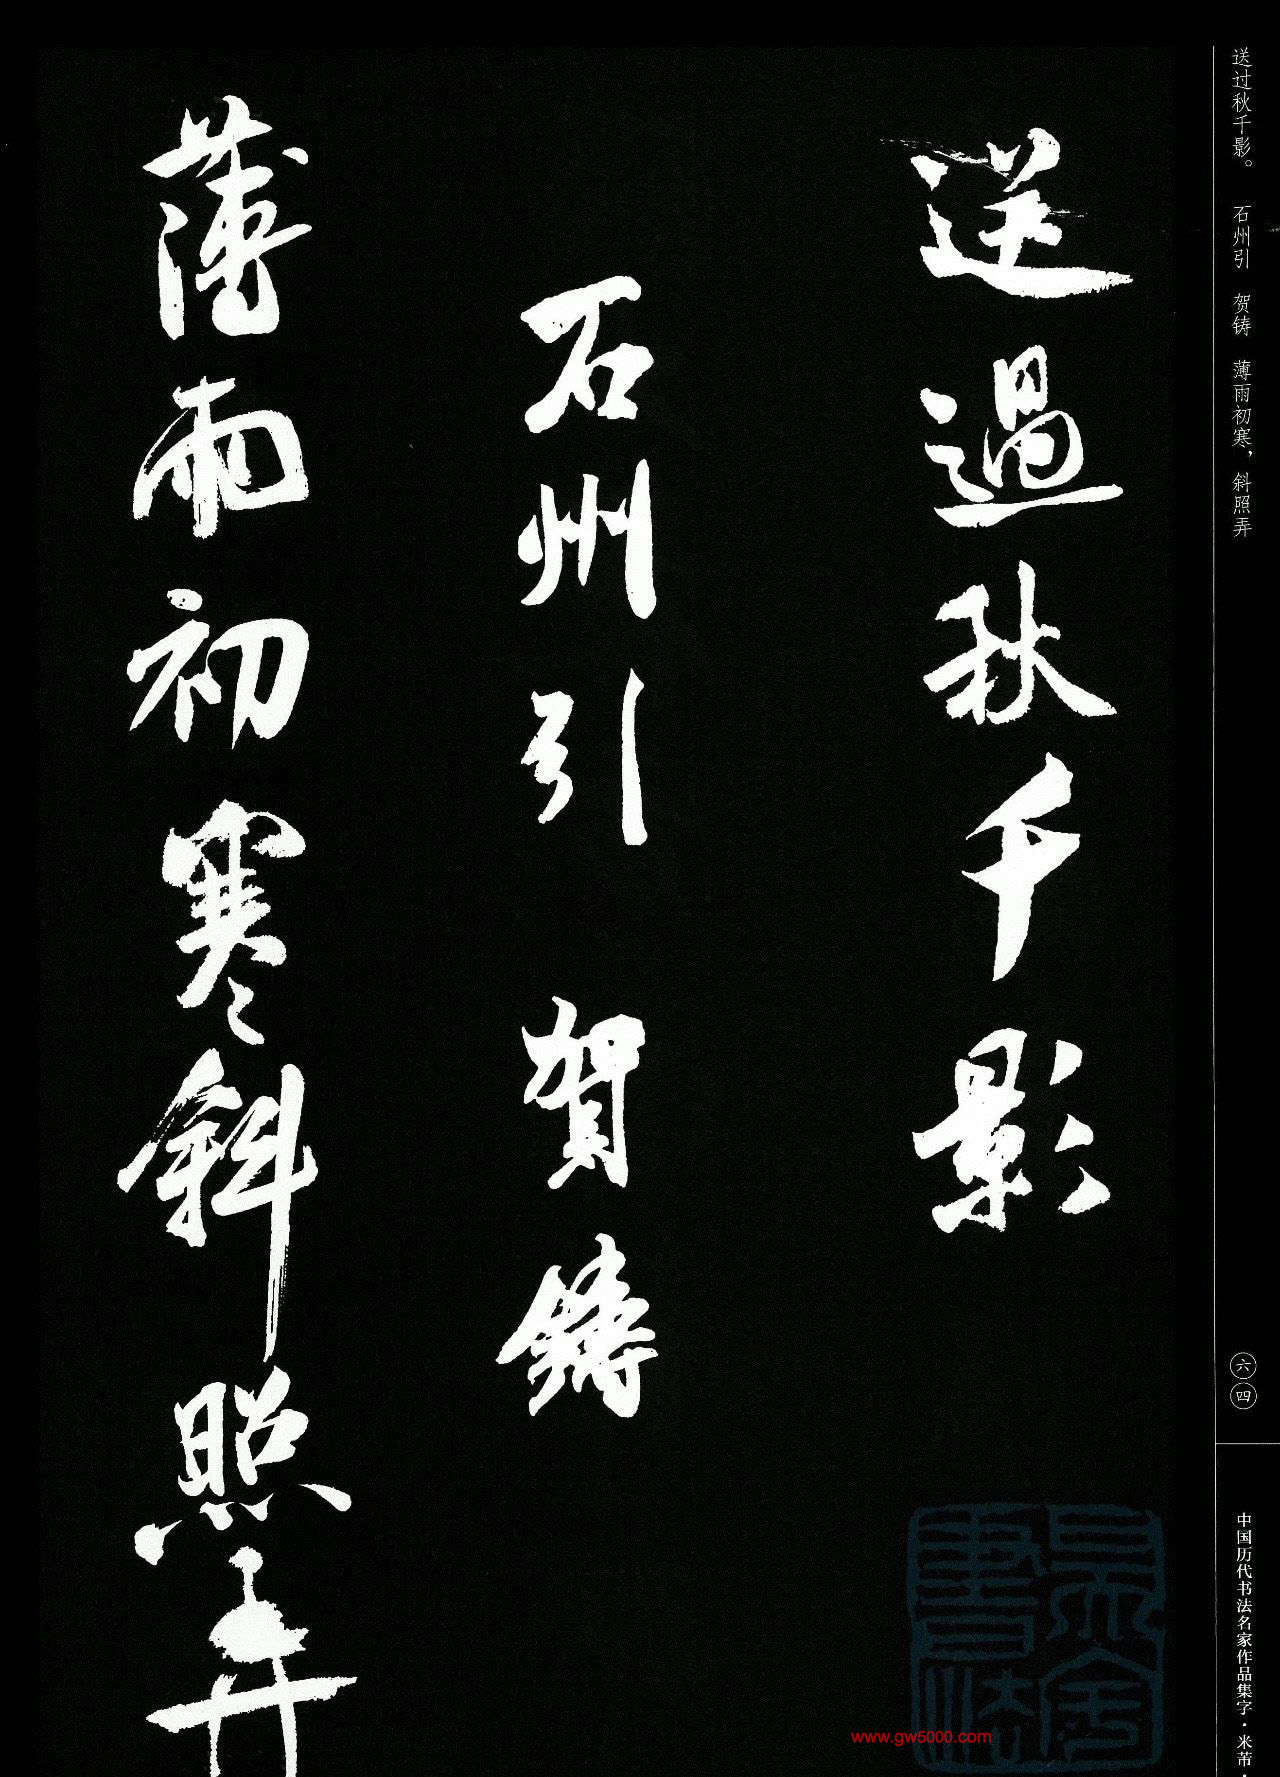 送过秋千影。 石州引 贺铸 薄雨初寒，斜照弄
送過秋千影
石州引 賀鑄
薄雨初寒斜照弄
六四
中国历代书法名家作品集字·米芾·
www.gw5000.com